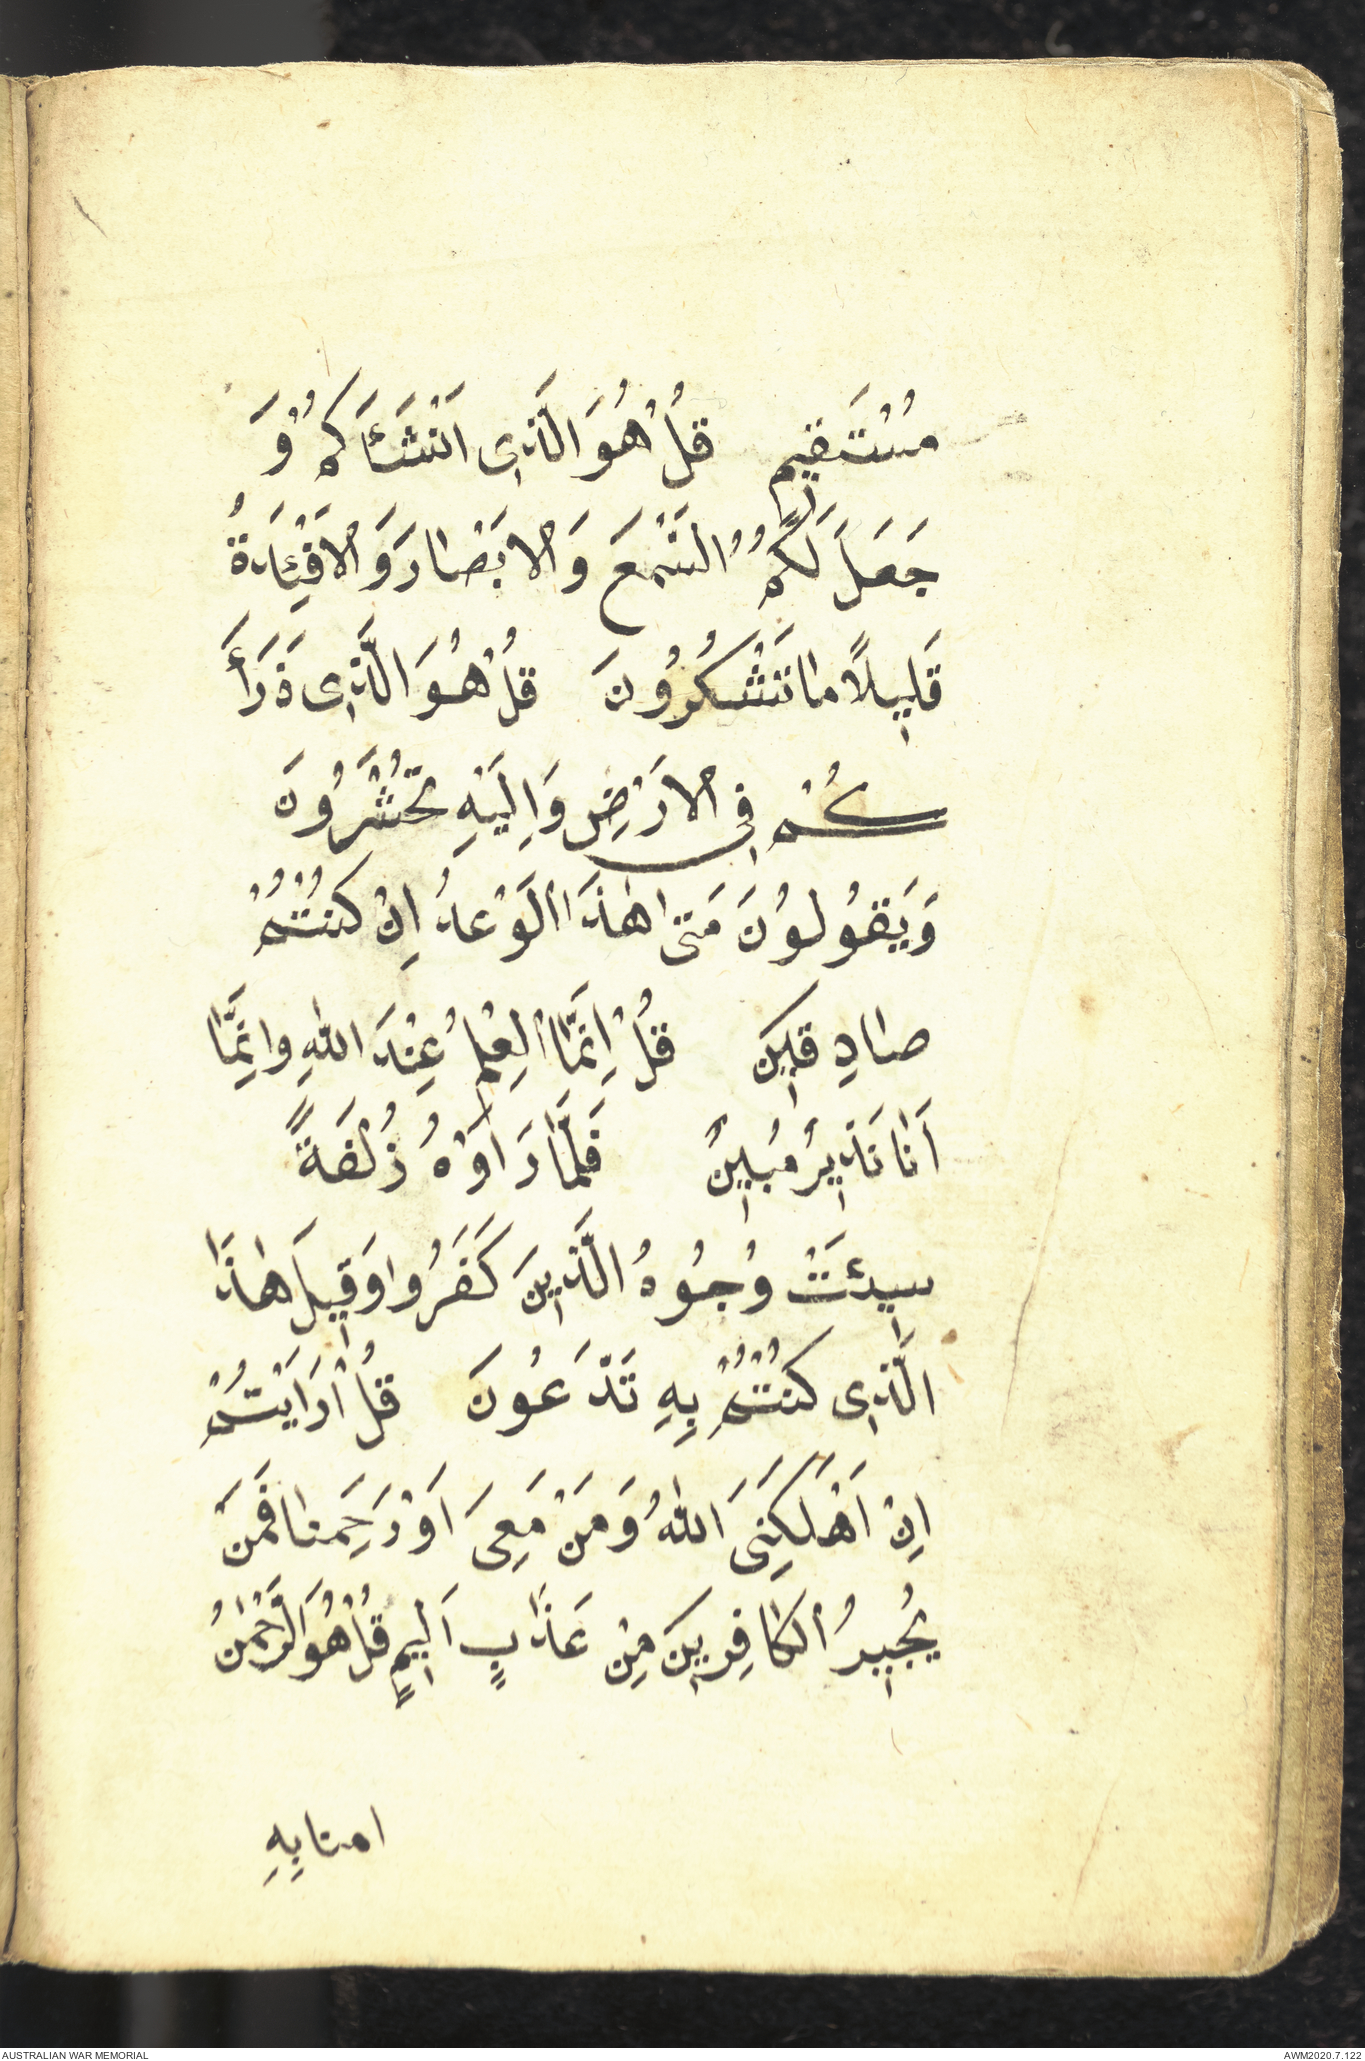 مُسْتَقِيمٍ قُلْ هُوَ الَّذِى اَنْشَئَاَكُمْ وَ
جَعَلَ لَكُمُ السَّمْعَ وَالْاَبْصَارَ وَالْاَفْئِدَةَ
قَلِيلًا مَا تَشْكُرُونَ قُلْ هُوَ الَّذِى ذَرَأَ
كُمْ فِى الْاَرْضِ وَاِلَيْهِ تُحْشَرُونَ
وَيَقُولُونَ مَتٰى هٰذَا الْوَعْدُ اِنْ كُنْتُمْ
صَادِقِينَ قُلْ اِنَّمَا الْعِلْمُ عِنْدَ اللّٰهِ وَاِنَّمَا
اَنَا نَذِيرٌ مُبِينٌ فَلَمَّا رَاَوْهُ زُلْفَةً
سِيئَتْ وُجُوهُ الَّذِينَ كَفَرُوا وَقِيلَ هٰذَا
الَّذِى كُنْتُمْ بِهِ تَدَّعُونَ قُلْ اَرَاَيْتُمْ
اِنْ اَهْلَكَنِىَ اللّٰهُ وَمَنْ مَعِىَ اَوْ رَحِمَنَا فَمَنْ
يُجِيرُ الْكَافِرِينَ مِنْ عَذَابٍ اَلِيمٍ قُلْ هُوَ الرَّحْمٰنُ
امنا بِهِ
AUSTRALIAN WAR MEMORIAL AWM2020.7.122